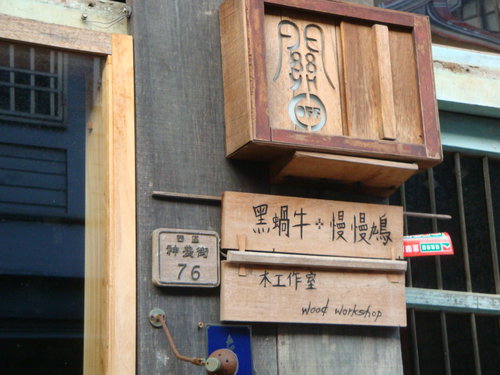 關
OFF
黑蝸牛 · 慢慢鳩
木工作室
wood workshop
神農街
76